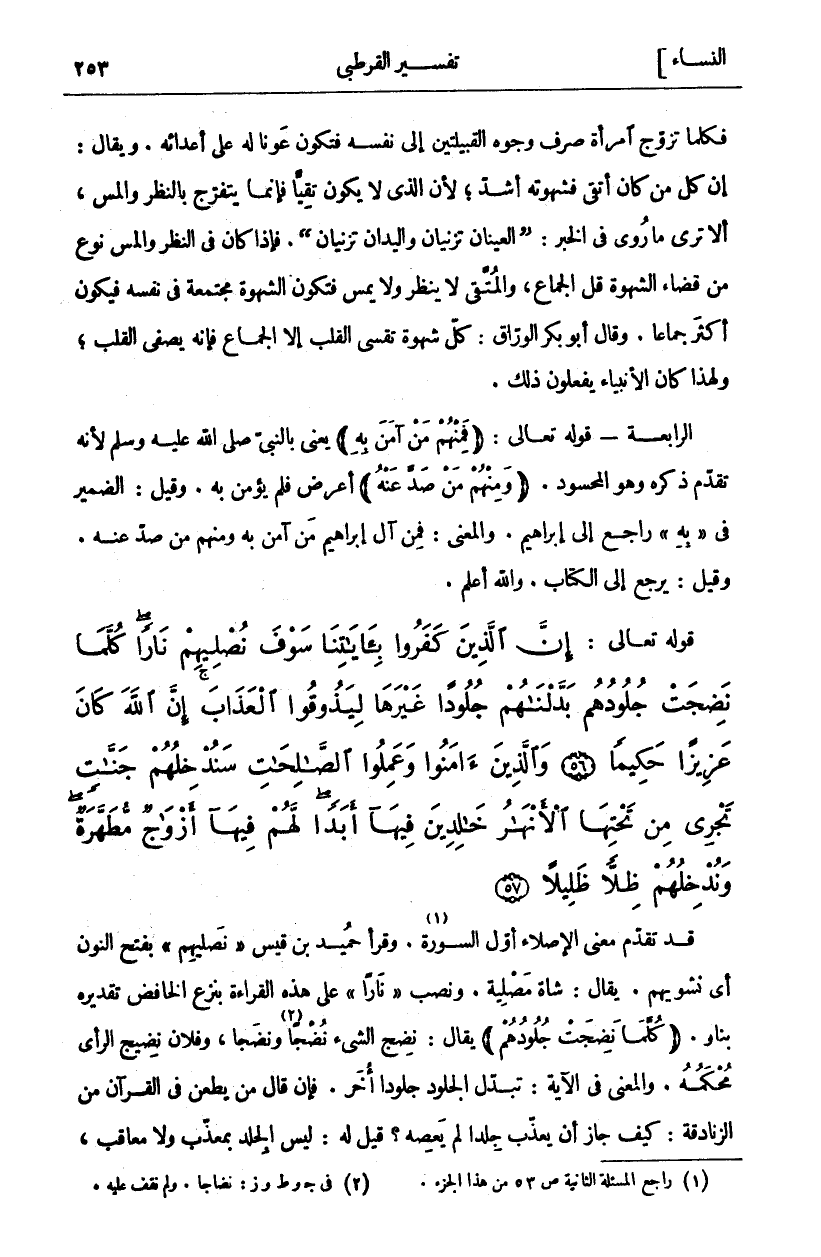 النساء ] تفسير القرطبى ٢٥٣
فكلما تزوّج آمرأة صرف وجوه القبيلتين إلى نفسه فتكون عَونا له على أعدائه . ويقال :
إن كل من كان أتقى فشهوته أشدّ ؛ لأن الذى لا يكون تقِيًّا فإنما يتفرّج بالنظر والمس ،
ألا ترى ما رُوى فى الخبر : ”العينان تزنيان واليدان تزنيان“ . فإذا كان فى النظر والمس نوع
من قضاء الشهوة قل الجماع ، والمُتَّقى لا ينظر ولا يمس فتكون الشهوة مجتمعة فى نفسه فيكون
أكثَر جماعا . وقال أبو بكر الورّاق : كلّ شهوة تقسى القلب إلا الجماع فإنه يصفى القلب ؛
ولهذا كان الأنبياء يفعلون ذلك .
الرابعة — قوله تعالى : ﴿فَمِنْهُمْ مَنْ آمَنَ بِهِ﴾ يعنى بالنبىّ صلى الله عليه وسلم لأنه
تقدّم ذكره وهو المحسود . ﴿وَمِنْهُمْ مَنْ صَدَّ عَنْهُ﴾ أعرض فلم يؤمن به . وقيل : الضمير
فى « بِهِ » راجع إلى إبراهيم . والمعنى : فمِن آل إبراهيم مَن آمن به ومنهم من صدّ عنه .
وقيل : يرجع إلى الكتاب . والله أعلم .
قوله تعالى : إِنَّ ٱلَّذِينَ كَفَرُوا بِـَٔايَـٰتِنَا سَوْفَ نُصْلِيهِمْ نَارًاۖ كُلَّمَا
نَضِجَتْ جُلُودُهُم بَدَّلْنَـٰهُمْ جُلُودًا غَيْرَهَا لِيَذُوقُوا ٱلْعَذَابَۚ إِنَّ ٱللَّهَ كَانَ
عَزِيزًا حَكِيمًا ﴿٥٦﴾ وَٱلَّذِينَ ءَامَنُوا وَعَمِلُوا ٱلصَّـٰلِحَـٰتِ سَنُدْخِلُهُمْ جَنَّـٰتٍ
تَجْرِى مِن تَحْتِهَا ٱلْأَنْهَـٰرُ خَـٰلِدِينَ فِيهَآ أَبَدًاۖ لَّهُمْ فِيهَآ أَزْوَٰجٌ مُّطَهَّرَةٌۖ
وَنُدْخِلُهُمْ ظِلًّا ظَلِيلًا ﴿٥٧﴾
قد تقدّم معنى الإصلاء أوّل السورة (١) . وقرأ حمُيد بن قيس « نَصليهم » بفتح النون
أى نشويهم . يقال : شاة مَصْلِية . ونصب « نَارًا » على هذه القراءة بنزع الخافض تقديره
بنار . ﴿كُلَّمَا نَضِجَتْ جُلُودُهُمْ﴾ يقال : نضِج الشىء نُضْجًا (٢) ونَضَجا ، وفلان نضيج الرأى
مُحْكَمُهُ . والمعنى فى الآية : تبدّل الجلود جلودا أُخَر . فإن قال من يطعن فى القرآن من
الزنادقة : كيف جاز أن يعذّب جِلدا لم يَعصِه ؟ قيل له : ليس الجلد بمعذّب ولا معاقب ،
(١) راجع المسئلة الثانية ص ٥٣ من هذا الجزء . (٢) فى ج و ط و ز : نضاجا . ولم نقف عليه .